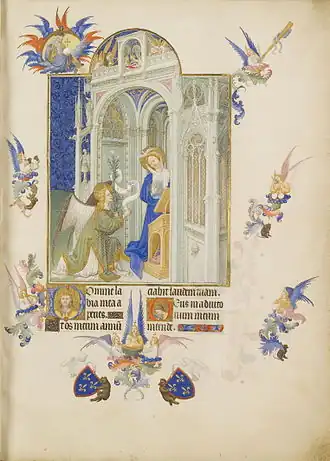 Omine la
bia mea a
peries.
et os meum annū
ciabit laudem tuam.
Deus in adiuto
rium meum
intende.